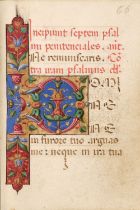 66
Incipiunt septem psal
mi penitenciales. ant.
Ne reminiscaris.
tra vam psalmus
D OM
NE
N E
in furore tuo arguas
me: neque in ira tua